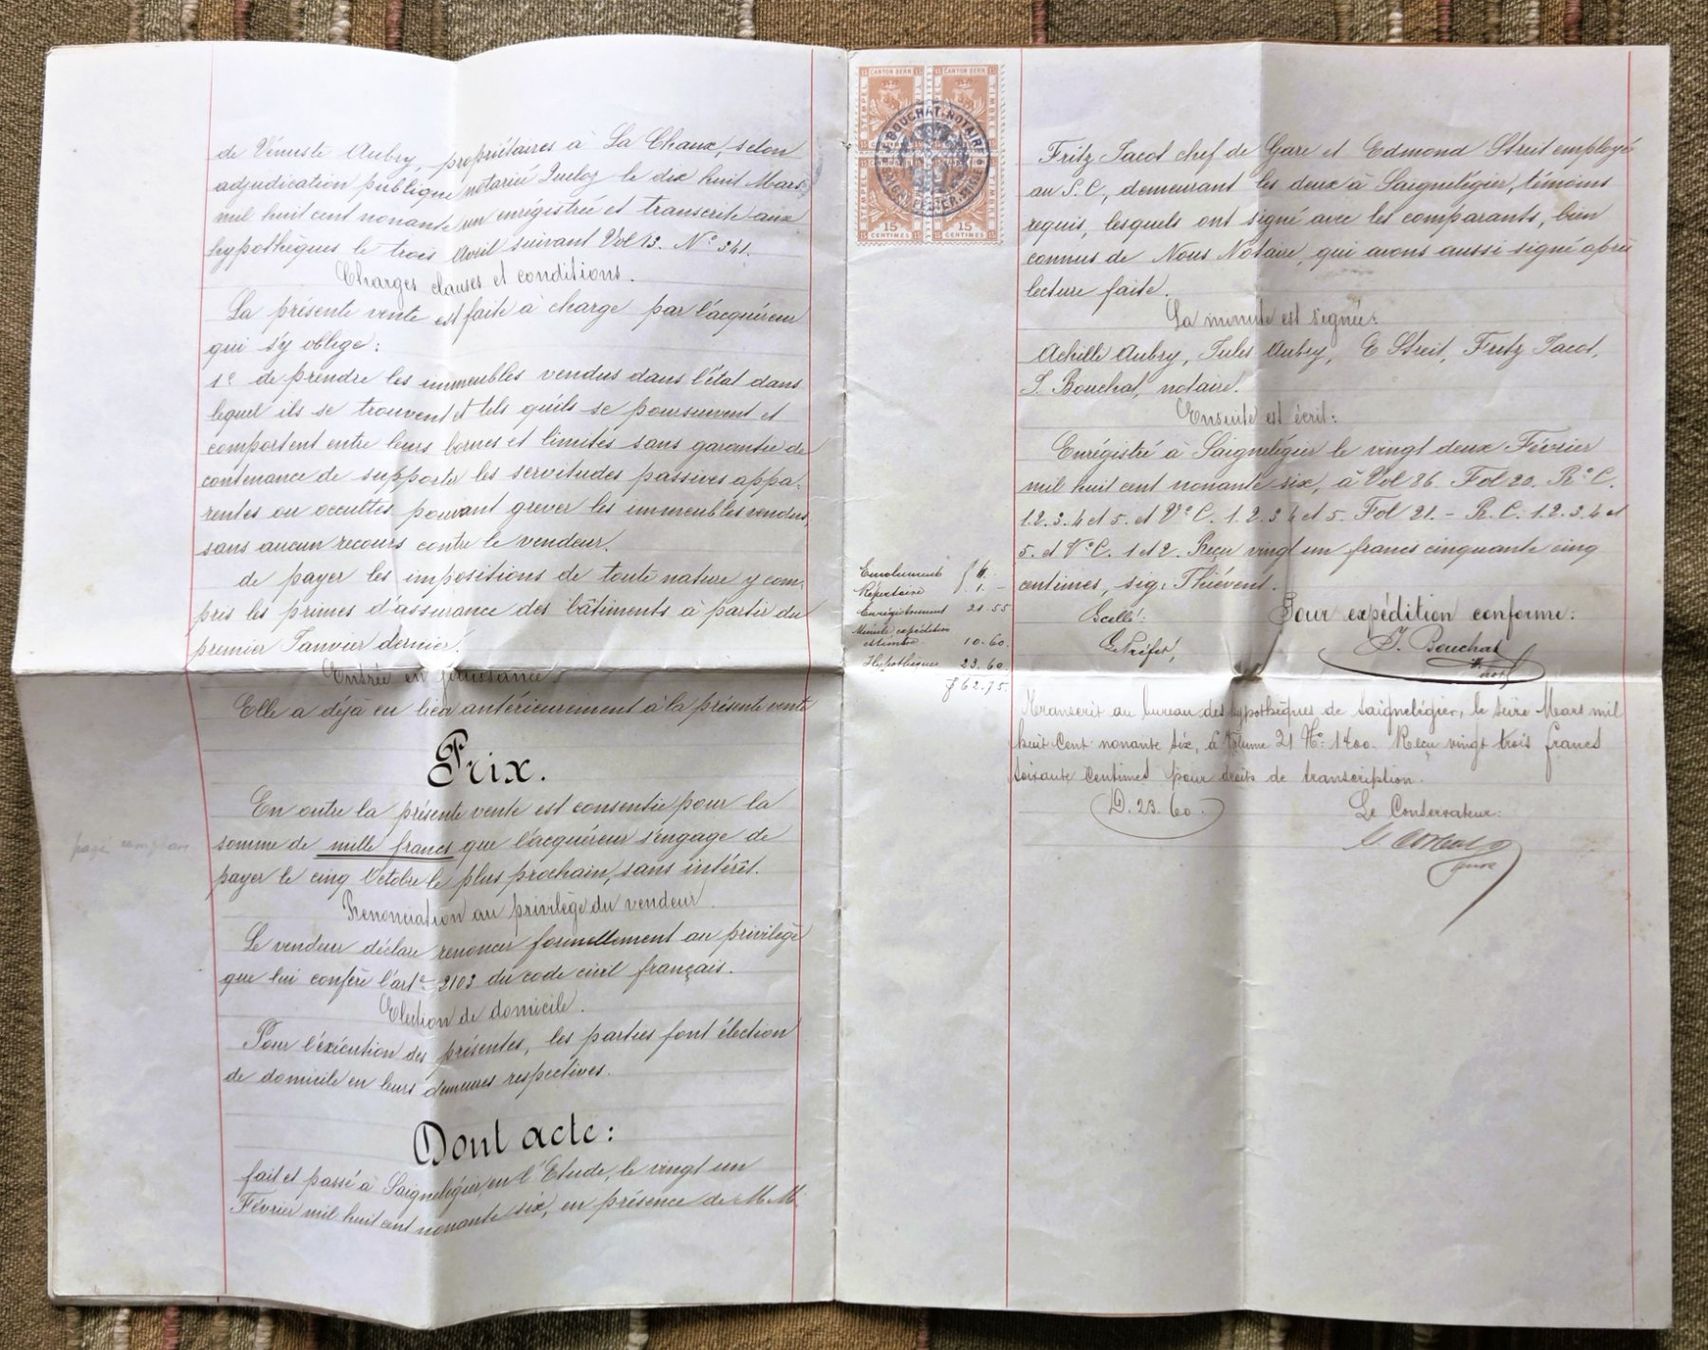 de Vénuste Aubry, propriétaires à La Chaux, selon
adjudication publique notariée Queloz le dix huit Mars
mil huit cent nonante un enrégistrée et transcrite aux
hypothèques le trois Avril suivant Vol 13. N° 341.
Charges clauses et conditions.
La présente vente est faite à charge par l'acquéreur
qui s'y oblige:
1° de prendre les immeubles vendus dans l'état dans
lequel ils se trouvent et tels qu'ils se poursuivent et
comportent entre leurs bornes et limites sans garantie de
contenance de supporter les servitudes passives appa-
rentes ou occultes pouvant grever les immeubles vendus,
sans aucun recours contre le vendeur.
de payer les impositions de toute nature y com-
pris les primes d'assurance des bâtiments à partir du
premier Janvier dernier.
Entrée en jouissance.
Elle a déjà eu lieu antérieurement à la présente vente
Prix.
En outre la présente vente est consentie pour la
somme de mille francs que l'acquéreur s'engage de
payer le cinq Octobre le plus prochain, sans intérêt.
Renonciation au privilège du vendeur.
Le vendeur déclare renoncer formellement au privilège
que lui confère l'art. 2103 du code civil français.
Election de domicile.
Pour l'éxécution des présentes, les parties font élection
de domicile en leurs demeures respectives.
Dont acte:
fait et passé à Saignelégier, en l'Etude, le vingt un
Février mil huit cent nonante six, en présence de M.M.
CANTON BERN CANTON BERN
STEMPEL TIMBRE
BOUCHAT NOTAIRE
15 15
CENTIMES CENTIMES
Fritz Jacot chef de Gare et Edmond Streit employé
au S.C, demeurant les deux à Saignelégier, témoins
requis, lesquels ont signé avec les comparants, bien
connus de Nous Notaire, qui avons aussi signé après
lecture faite.
La minute est signée:
Achille Aubry, Jules Aubry, E Streit, Fritz Jacot,
J. Bouchat, notaire.
Ensuite est écrit:
Enrégistré à Saignelégier le vingt deux Février
mil huit cent nonante six, à Vol 26 Fol 20. R° C.
1.2.3.4 et 5. et V° C. 1.2.3 4 et 5. Fol 21. - R. C. 1.2.3.4 et
5. et V° C. 1 et 2. Reçu vingt un francs cinquante cinq
centimes, sig. Thiévent.
Emoluments f 6. -
Répertoire f 1. -
Enrégistrement 21.55
Minute, expédition
et timbre 10.60.
Hypothèque 23.60
f 62.75.
Scellé: Pour expédition conforme:
J. Bouchat
not.
Transcrit au bureau des hypothèques de Saignelégier, le seize Mars mil
huit Cent nonante six, à Volume 21 N°. 1400. Reçu vingt trois francs
soixante Centimes pour droits de transcription.
D. 23. 60. Le Conservateur: